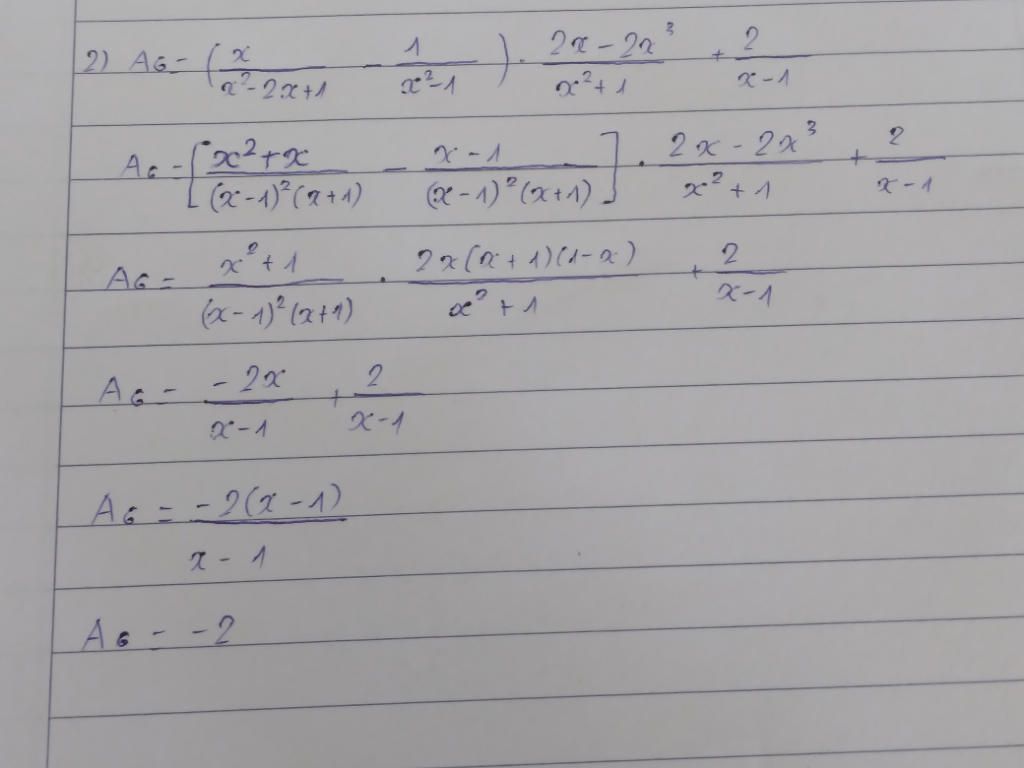 2) A₆ = (x/(x²-2x+1) - 1/(x²-1)) · (2x-2x³)/(x²+1) + 2/(x-1)
A₆ = [(x²+x)/((x-1)²(x+1)) - (x-1)/((x-1)²(x+1))] · (2x-2x³)/(x²+1) + 2/(x-1)
A₆ = (x²+1)/((x-1)²(x+1)) · (2x(x+1)(1-x))/(x²+1) + 2/(x-1)
A₆ = -2x/(x-1) + 2/(x-1)
A₆ = -2(x-1)/(x-1)
A₆ = -2